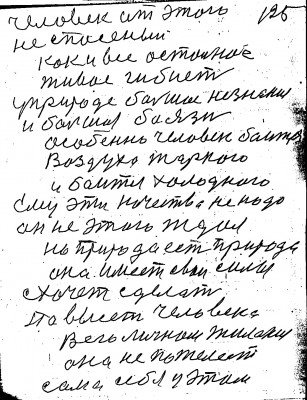 человек от этого 125
не спосеный
как и все остоиное
живое гибнет
у природе большое незнание
и большая баязн
особенно человек баитса
Воздуха жаркого
и баитса холодного
Ему эти качества не надо
он не этого ждал
но природа ест природа
она имеет свои силы
Захочет сделает
Повысет человека
Вего личном желании
она не пожелеет
сама себя у этом